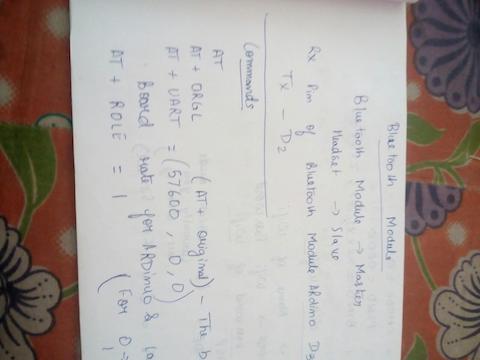 Bluetooth Module
Bluetooth Module → Master
Headset → Slave
Rx Pin of Bluetooth Module ARdino D3
Tx - D2
Commands
AT
AT + ORGL (AT + original) - The b
AT + UART = (57600, 0, 0)
Board rate for ARDinuo &
AT + ROLE = 1 (For 0 →